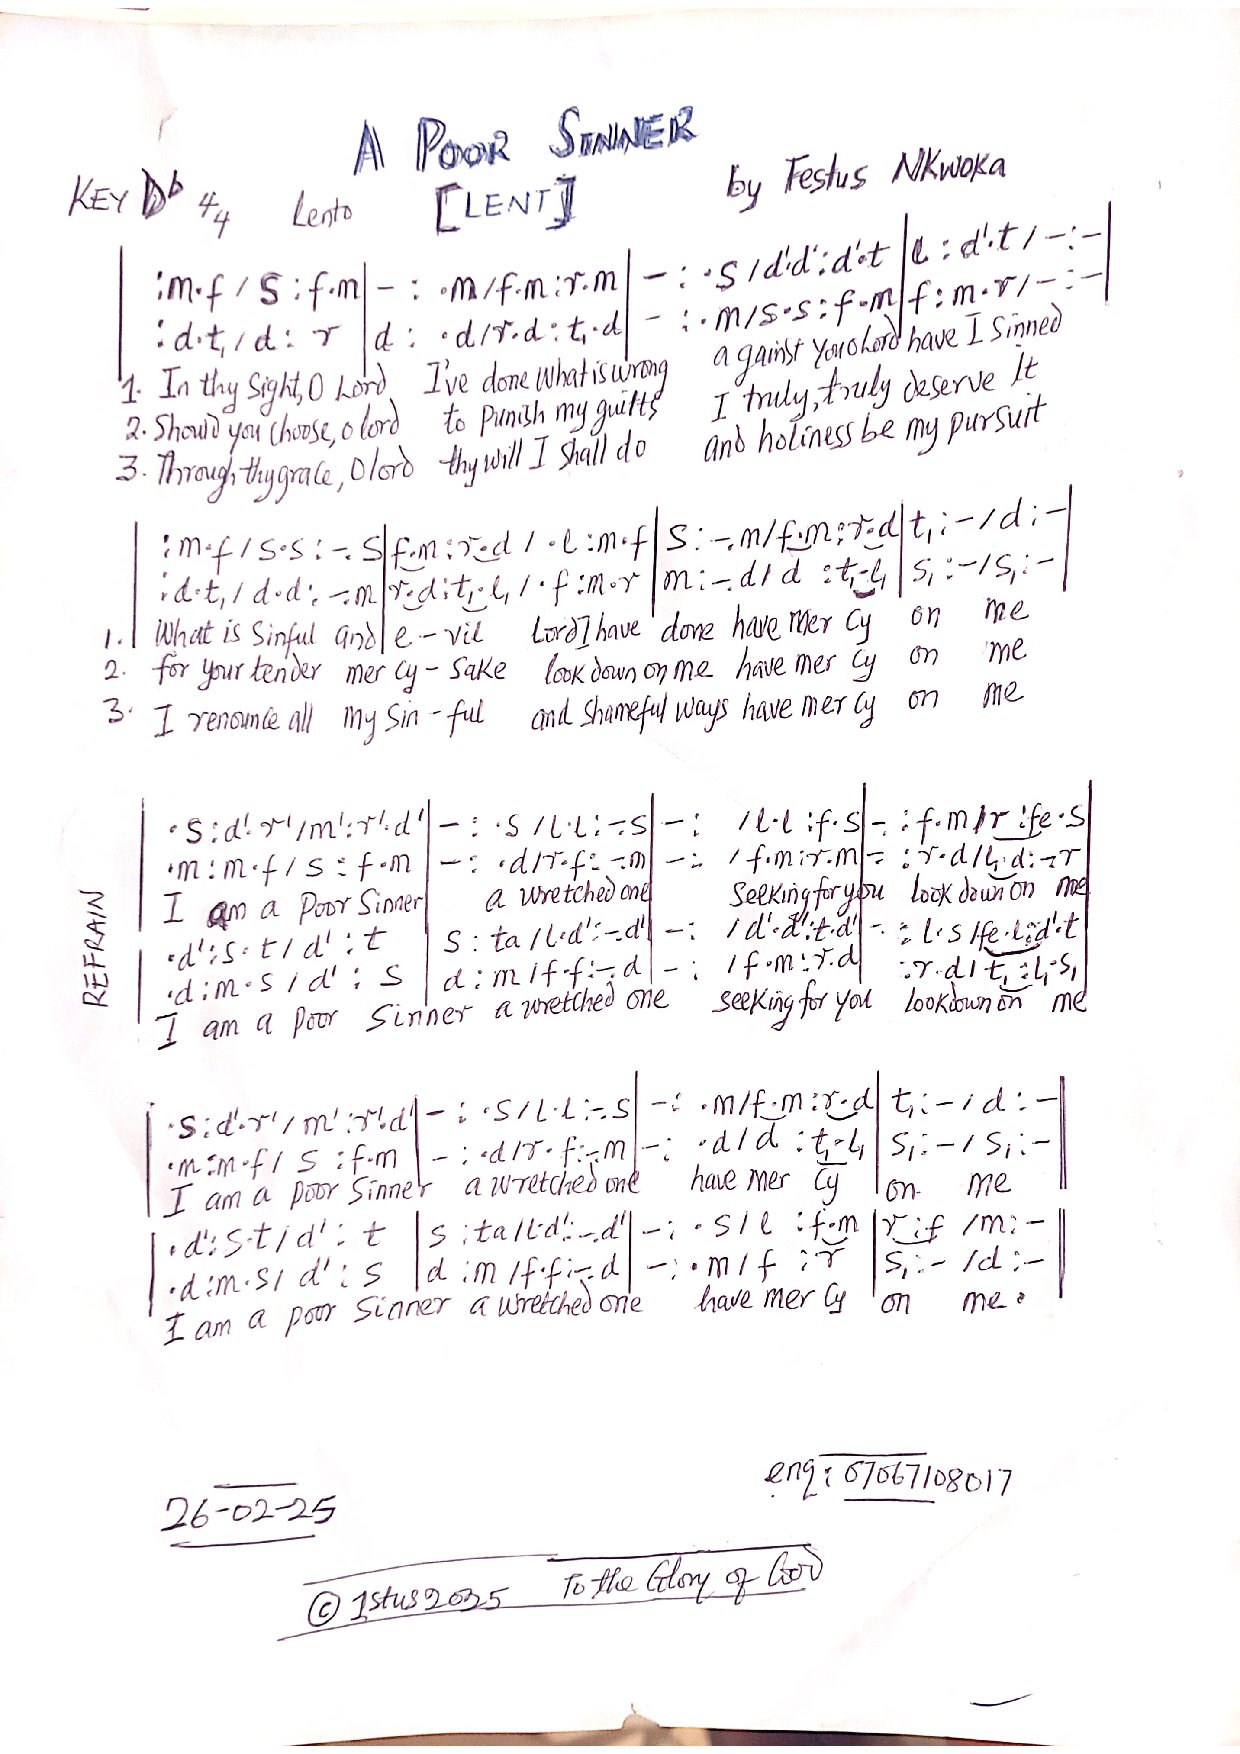 A POOR SINNER
KEY Db 4/4 Lento [LENT] by Festus NKwoka
| :m.f / s :f.m | - : .m/f.m:r.m | - : .s / d'.d':d'.t | l : d'.t / - : - |
| :d.t, / d : r | d : .d/r.d:t,.d | - : .m/s.s:f.m | f:m.r / - : - |
1. In thy Sight, O Lord I've done what is wrong against you O Lord have I Sinned
2. Should you choose, o lord to punish my guilts I truly, truly deserve it
3. Through thy grace, O lord thy will I shall do and holiness be my pursuit
| :m.f / s.s : -.s | f.m:r.d / .l:m.f | s : -.m/f.m:r.d | t, : - / d : - |
| :d.t, / d.d : -.m | r.d:t,.l, / .f:m.r | m : -.d/d :t,.l, | s, : - / s, : - |
1. What is Sinful and e-vil Lord I have done have mer cy on me
2. for your tender mer cy-sake look down on me have mer cy on me
3. I renounce all my Sin-ful and shameful ways have mer cy on me
REFRAIN
| .s:d'.r'/m':r'.d' | - : .s / l.l : -.s | - : / l.l :f.s | - : f.m/r :fe.s |
.m:m.f / s : f.m | - : .d/r.f : -.m | - : / f.m:r.m | - : r.d/l,.d : -.r
I am a Poor Sinner a wretched one seeking for you look down on me
.d':s.t / d' : t | s : ta / l.d' : -.d' | - : / d'.d':t.d' | - : l.s/fe.l:d'.t
.d:m.s / d' : s | d : m / f.f : -.d | - : / f.m:r.d | :r.d/t, :l,.s,
I am a poor Sinner a wretched one seeking for you look down on me
| .s:d'.r' / m' :r'.d' | - : .s / l.l : -.s | - : .m/f.m:r.d | t, : - / d : - ||
.m:m.f / s :f.m | - : .d/r.f : -.m | - : .d/d :t,.l, | s, : - / s, : - ||
I am a poor Sinner a wretched one have mer cy on me
| .d':s.t / d' : t | s : ta / l.d' : -.d' | - : .s / l :f.m | r:f /m : - ||
| .d:m.s / d' : s | d : m / f.f : -.d | - : .m / f : r | s, : - / d : - ||
I am a poor Sinner a wretched one have mer cy on me.
enq: 07067108017
26-02-25
© 1stus2025 To the Glory of God